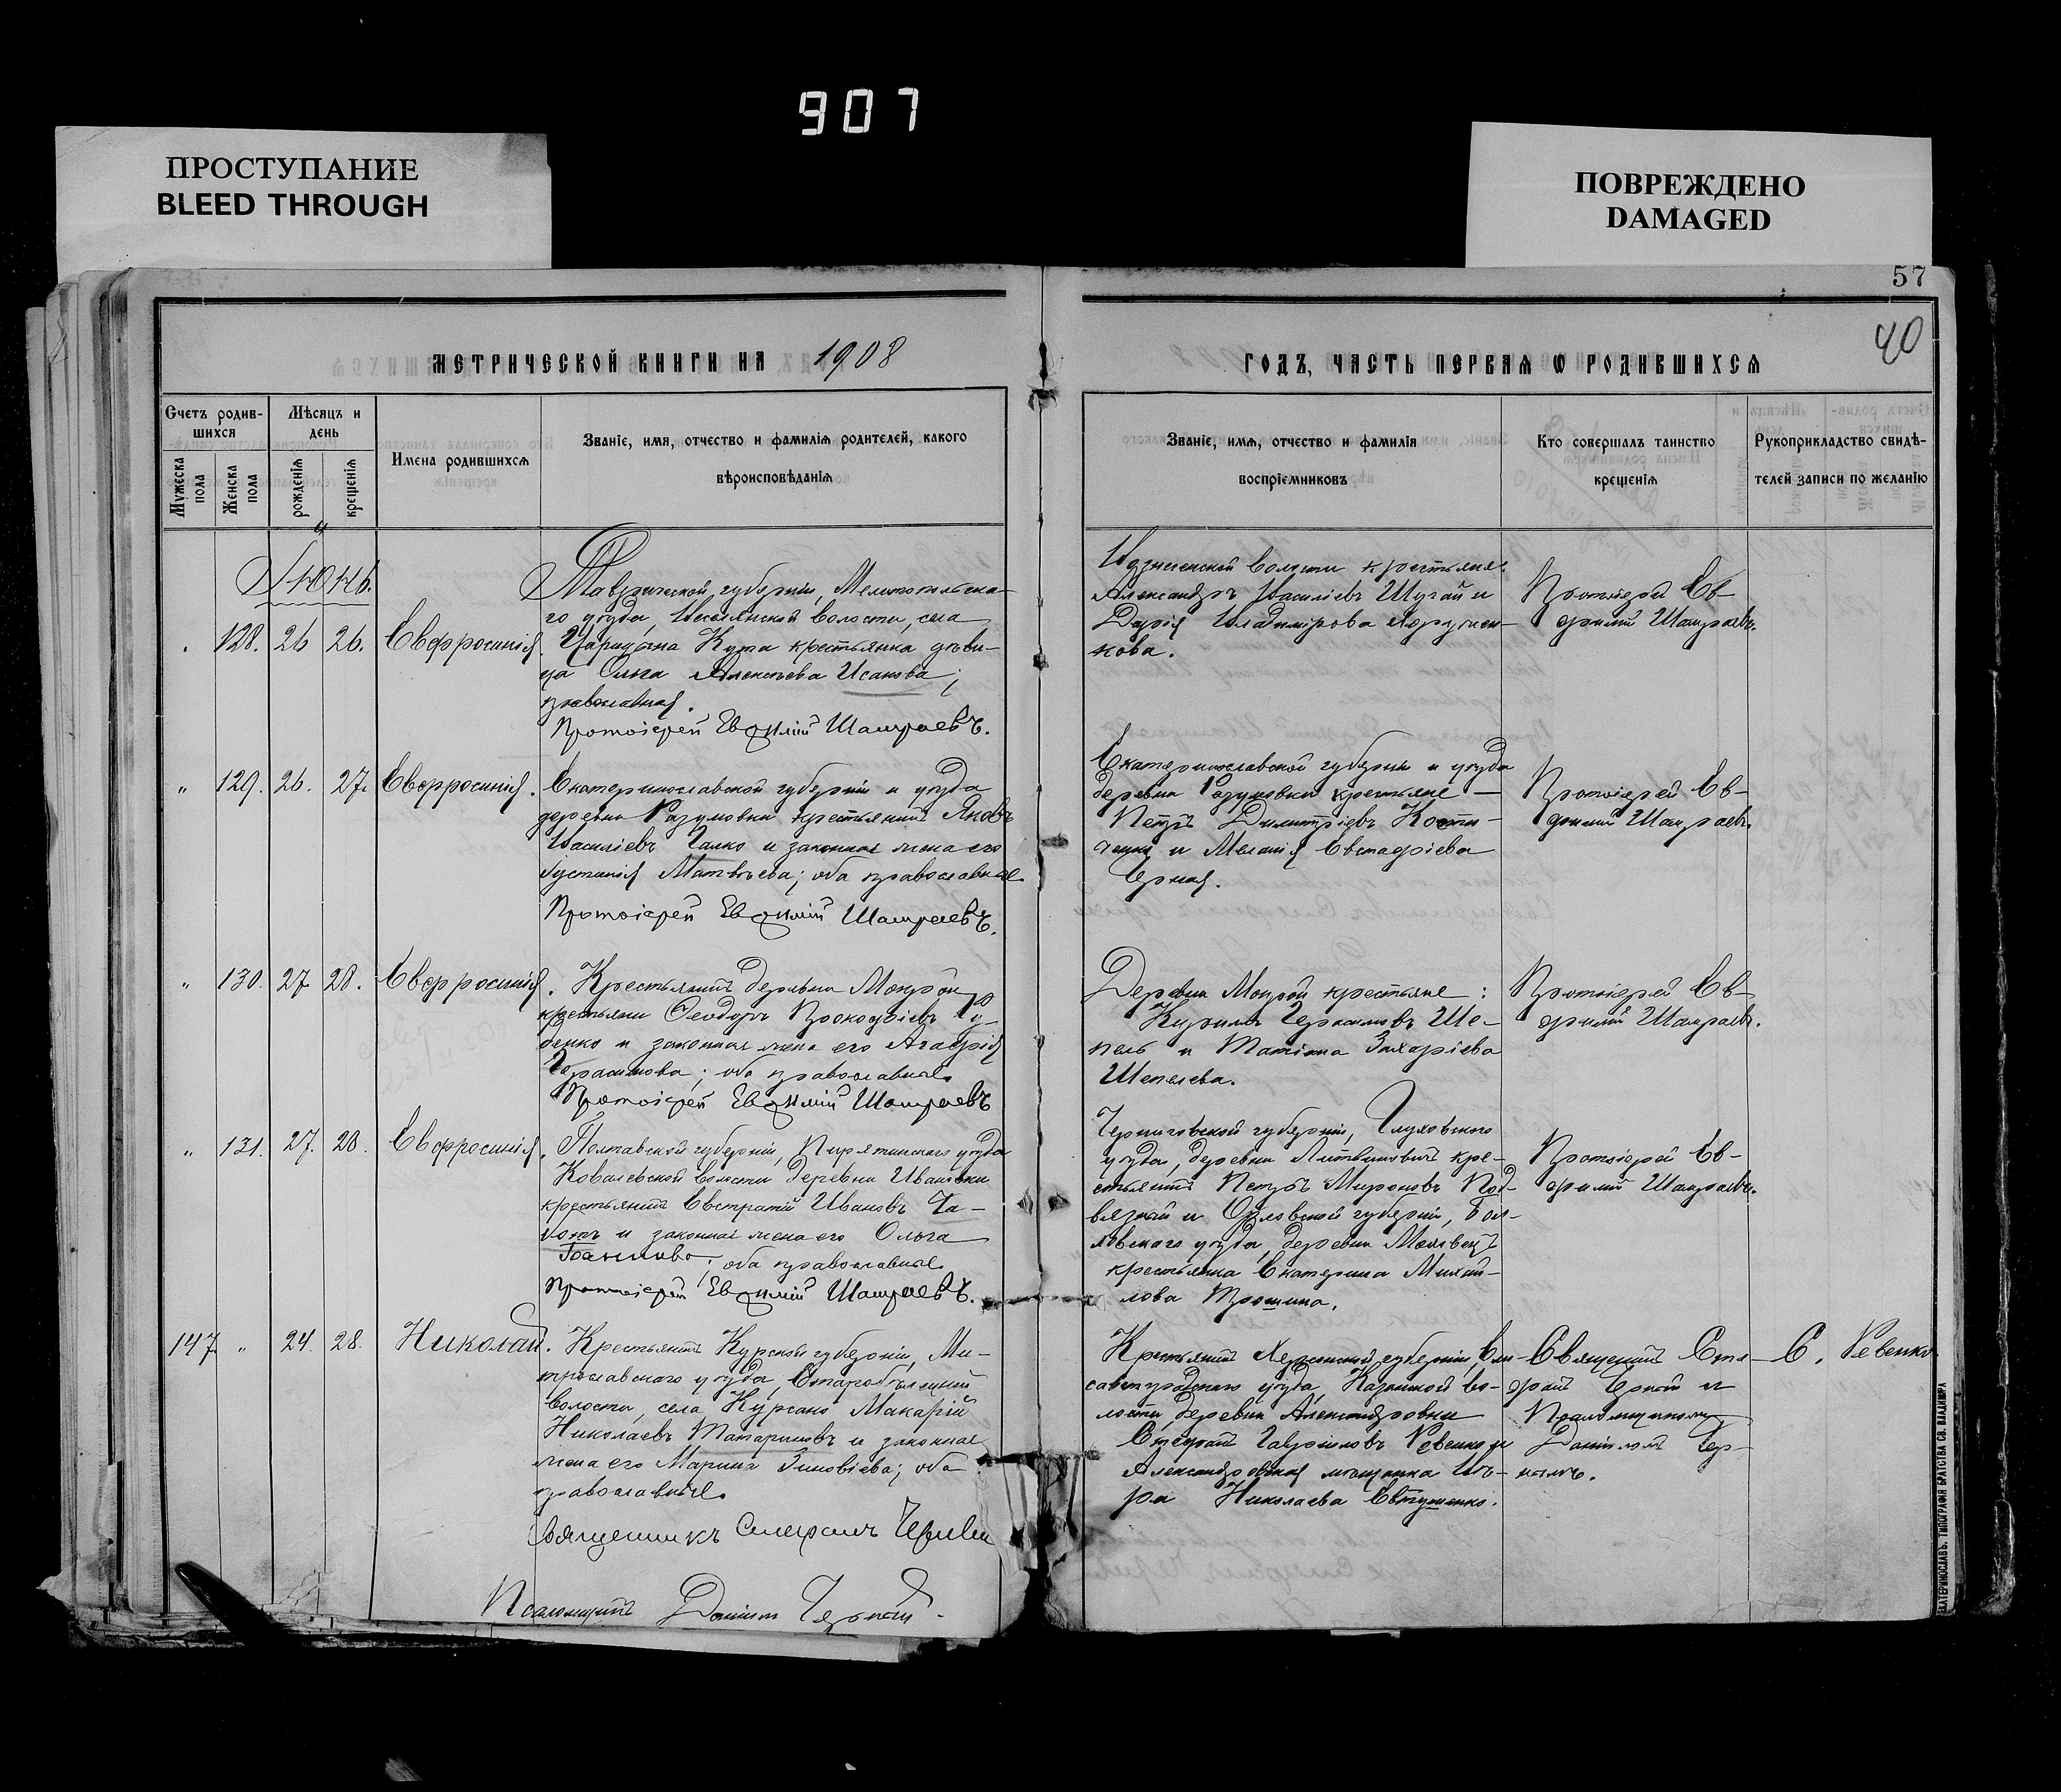 907
ПРОСТУПАНИЕ
BLEED THROUGH
ПОВРЕЖДЕНО
DAMAGED
57
40
МЕТРИЧЕСКОЙ КНИГИ НА 1908
ГОДЪ, ЧАСТЬ ПЕРВАЯ Ѡ РОДИВШИХСЯ
Счетъ родив-
шихся
Мужеска пола
Женска пола
Мѣсяцъ и
день
рожденія
крещенія
Имена родившихся
Званіе, имя, отчество и фамилія родителей, какого
вѣроисповѣданія
Званіе, имя, отчество и фамилія
воспріемниковъ
Кто совершалъ таинство
крещенія
Рукоприкладство свидѣ-
телей записи по желанію
Іюнь.
128. 26 26. Евфросинія.
Таврической губерніи, Мелитопольска-
го уѣзда, волости, села
Царицына Кута крестьянка дѣви-
ца Ольга Алексѣева Исакова;
православная.
Протоіерей Евфимій Шамраевъ.
волости крестьяне:
Александръ Васильевъ Шугай и
Дарія Владимірова
нова.
Протоіерей Ев-
фимій Шамраевъ.
" 129. 26. 27. Евфросинія.
Екатеринославской губерніи и уѣзда
деревни Разумовки крестьянинъ Яковъ
Васильевъ Галко и законная жена его
Іустинія Матвѣева; оба православные
Протоіерей Евфимій Шамраевъ.
Екатеринославской губерніи и уѣзда
деревни Разумовки крестьяне —
Петръ Димитріевъ Кости-
ченко и Меланія Евстафіева
Черная.
Протоіерей Ев-
фимій Шамраевъ.
" 130. 27 28. Евфросинія.
Крестьянинъ деревни Мокрой
крестьянин Ѳеодоръ Прокофіевъ Гу-
бенко и законная жена его Агафія
Герасимова; оба православные.
Протоіерей Евфимій Шамраевъ
Деревни Мокрой крестьяне:
Кириллъ Герасимовъ Ше-
пель и Татіана Захаріева
Шепелева.
Протоіерей Ев-
фимій Шамраевъ.
" 131. 27. 28. Евфросинія.
Полтавской губерніи, Пирятинскаго уѣзда
Ковалевской волости деревни Ивановки
крестьянинъ Евстратій Ивановъ Ча-
и законная жена его Ольга
; оба православные.
Протоіерей Евфимій Шамраевъ.
Черниговской губерніи, Глуховскаго
уѣзда, деревни Литвиновичъ кре-
стьянинъ Петръ Мироновъ Под-
вязный и Орловской губерніи, Бол-
ховскаго уѣзда, деревни
крестьянка Екатерина Михай-
лова Трошина.
Протоіерей Ев-
фимій Шамраевъ.
147. " 24. 28. Николай.
Крестьянинъ Курской губерніи,
уѣзда,
волости, села Макарій
Николаевъ Татариновъ и законная
жена его Марина Зиновіева; оба
православные.
Священникъ Стефанъ Черный
Псаломщикъ Даніилъ Черный.
Крестьянинъ Херсонской губерніи, Ели-
саветградскаго уѣзда, Казанской во-
лости, деревни Александровки
Стефанъ Гавриловъ Ревенко и
Александровская мѣщанка Вѣ-
ра Николаева Евтушенко.
Священникъ Сте-
фанъ Черный и
Псаломщикомъ
Даніиломъ Чер-
нымъ.
С. Ревенко
ЕКАТЕРИНОСЛАВЪ. ТИПОГРАФІЯ БРАТСТВА СВ. ВЛАДИМІРА